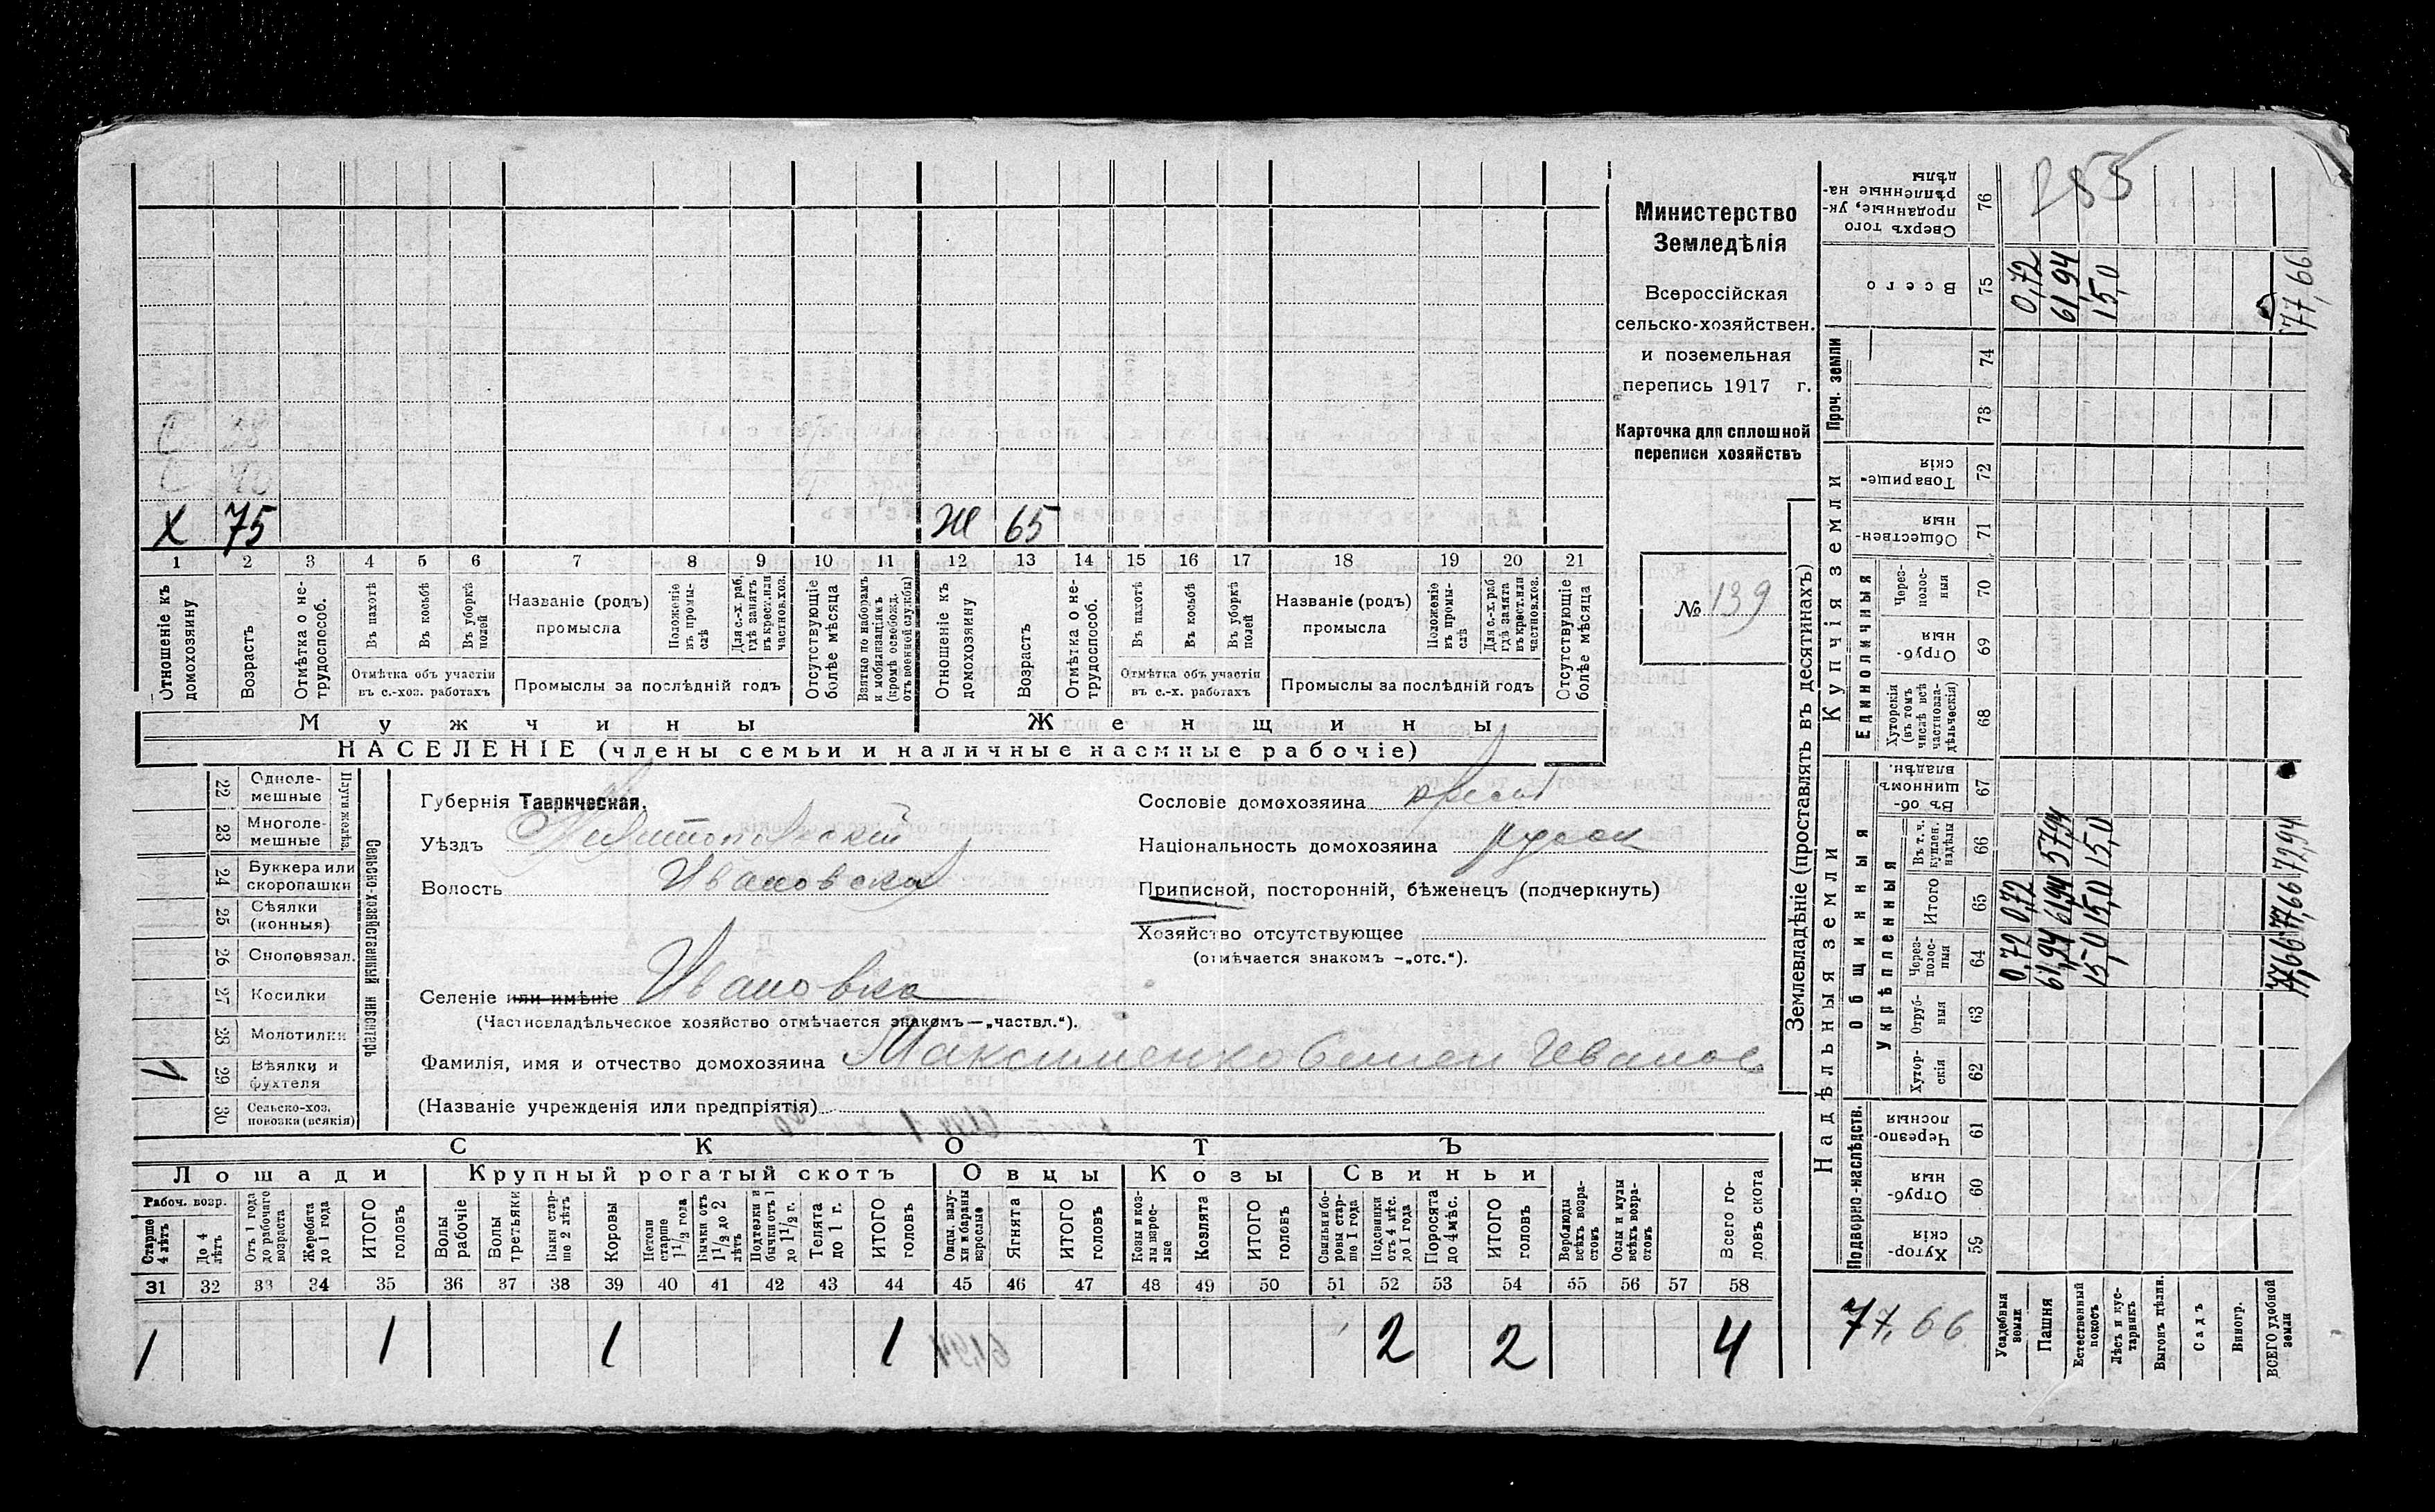 Министерство
Земледѣлія
Всероссійская
сельско-хозяйствен.
и поземельная
перепись 1917 г.
Карточка для сплошной
переписи хозяйствъ
№ 139
X 75 Ж 65
1 2 3 4 5 6 7 8 9 10 11 12 13 14 15 16 17 18 19 20 21
Отношеніе къ домохозяину
Возрастъ
Отмѣтка о не-трудоспособ.
Въ пахотѣ
Въ косьбѣ
Въ уборкѣ полей
Отмѣтка объ участіи
въ с.-хоз. работахъ
Названіе (родъ)
промысла
Положеніе въ промы-слѣ
Для с.-х. раб. гдѣ занятъ въ крест. или частнов. хоз.
Промыслы за послѣдній годъ
Отсутствующіе болѣе мѣсяца
Взятые по наборамъ и мобилизаціямъ (кромѣ освобожд. отъ военной службы)
Отношеніе къ домохозяину
Возрастъ
Отмѣтка о не-трудоспособ.
Въ пахотѣ
Въ косьбѣ
Въ уборкѣ полей
Отмѣтка объ участіи
въ с.-х. работахъ
Названіе (родъ)
промысла
Положеніе въ промы-слѣ
Для с.-х. раб гдѣ занята въ крест. или частнов. хоз.
Промыслы за послѣдній годъ
Отсутствующіе болѣе мѣсяца
Мужчины Женщины
НАСЕЛЕНІЕ (члены семьи и наличные наемные рабочіе)
22 Одноле-мешные
23 Многоле-мешные
Плуги желѣз.
24 Буккера или скоропашки
25 Сѣялки (конныя)
26 Сноповязал.
27 Косилки
28 Молотилки
V 29 Вѣялки и фухтеля
30 Сельско-хоз. повозки (всякія)
Сельско-хозяйственный инвентарь
Губернія Таврическая.
Уѣздъ Мелитопольскій
Волость Ивановская
Селеніе или имѣніе Ивановка
(Частновладѣльческое хозяйство отмѣчается знакомъ—„частвл.“).
Фамилія, имя и отчество домохозяина Максименко Семен Иванов
(Названіе учрежденія или предпріятія)
Сословіе домохозяина крест
Національность домохозяина русск
Приписной, посторонній, бѣженецъ (подчеркнуть)
Хозяйство отсутствующее
(отмѣчается знакомъ —„отс.“).
СКОТЪ
Лошади Крупный рогатый скотъ Овцы Козы Свиньи
Рабоч. возр.
Старше 4 лѣтъ
До 4 лѣтъ
Отъ 1 года до рабочаго возраста
Жеребята до 1 года
ИТОГО головъ
Волы рабочіе
Волы третьяки
Быки стар-ше 2 лѣтъ
Коровы
Нетели старше 1 1/2 года
Бычки отъ 1 1/2 до 2 лѣтъ
Подтелки и бычки отъ 1 до 1 1/2 г.
Телята до 1 г.
ИТОГО головъ
Овцы, валу-хи и бараны взрослые
Ягнята
ИТОГО головъ
Козы и коз-лы взрос-лые
Козлята
ИТОГО головъ
Свиньи и бо-ровы стар-ше 1 года
Подсвинки отъ 4 мѣс. до 1 года
Поросята до 4 мѣс.
ИТОГО головъ
Верблюды всѣхъ возра-стовъ
Ослы и мулы всѣхъ возра-стовъ
Всего го-ловъ скота
31 32 33 34 35 36 37 38 39 40 41 42 43 44 45 46 47 48 49 50 51 52 53 54 55 56 57 58
1 1 1 1 2 2 4
Землевладѣніе (проставлять въ десятинахъ)
Надѣльныя земли Купчія земли Проч. земли
Подворно-наслѣдств. Общинныя Единоличныя
Укрѣпленныя
Сверхъ того проданные, ук-рѣпленные на-дѣлы 76
Всего 75 0,72 61,94 15,0 77,66
74
73
Товарище-скія 72
Обществен-ныя 71
Через-полос-ныя 70
Отруб-ныя 69
Хуторскія (въ томъ числѣ всѣ частновла-дѣльческія) 68
Въ об-щинномъ владѣн. 67
Въ т. ч. куплен. надѣлы 66 57,94 15,0 72,94
Итого 65 0,72 61,94 15,0 77,66
Через-полос-ныя 64 0,72 61,94 15,0 77,66
Отруб-ныя 63
Хутор-скія 62
Черезпо-лосныя 61
Отруб-ныя 60
Хутор-скія 59
77,66
Усадебныя земли
Пашня
Естественный покосъ
Лѣсъ и кус-тарникъ
Выгонъ цѣлин.
Садъ
Виногр.
ВСЕГО удобной земли